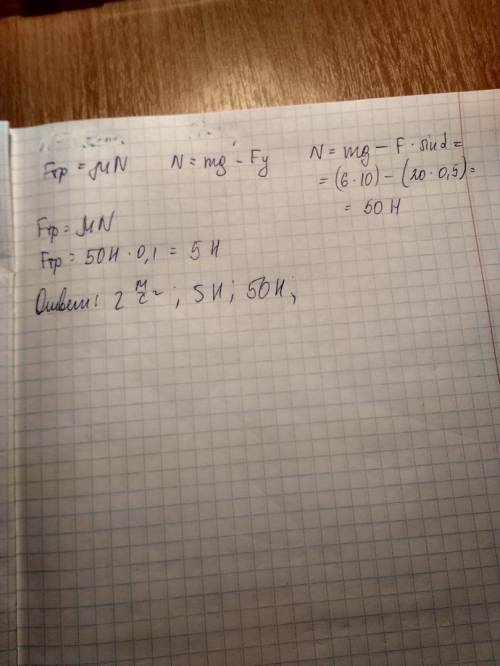 Fтр = μN    N = mg - Fy    N = mg - F · sinα =
= (6 · 10) - (20 · 0,5) =
= 50 H
Fтр = μN
Fтр = 50H · 0,1 = 5 H
Ответ: 2 м/с²; 5H; 50H;